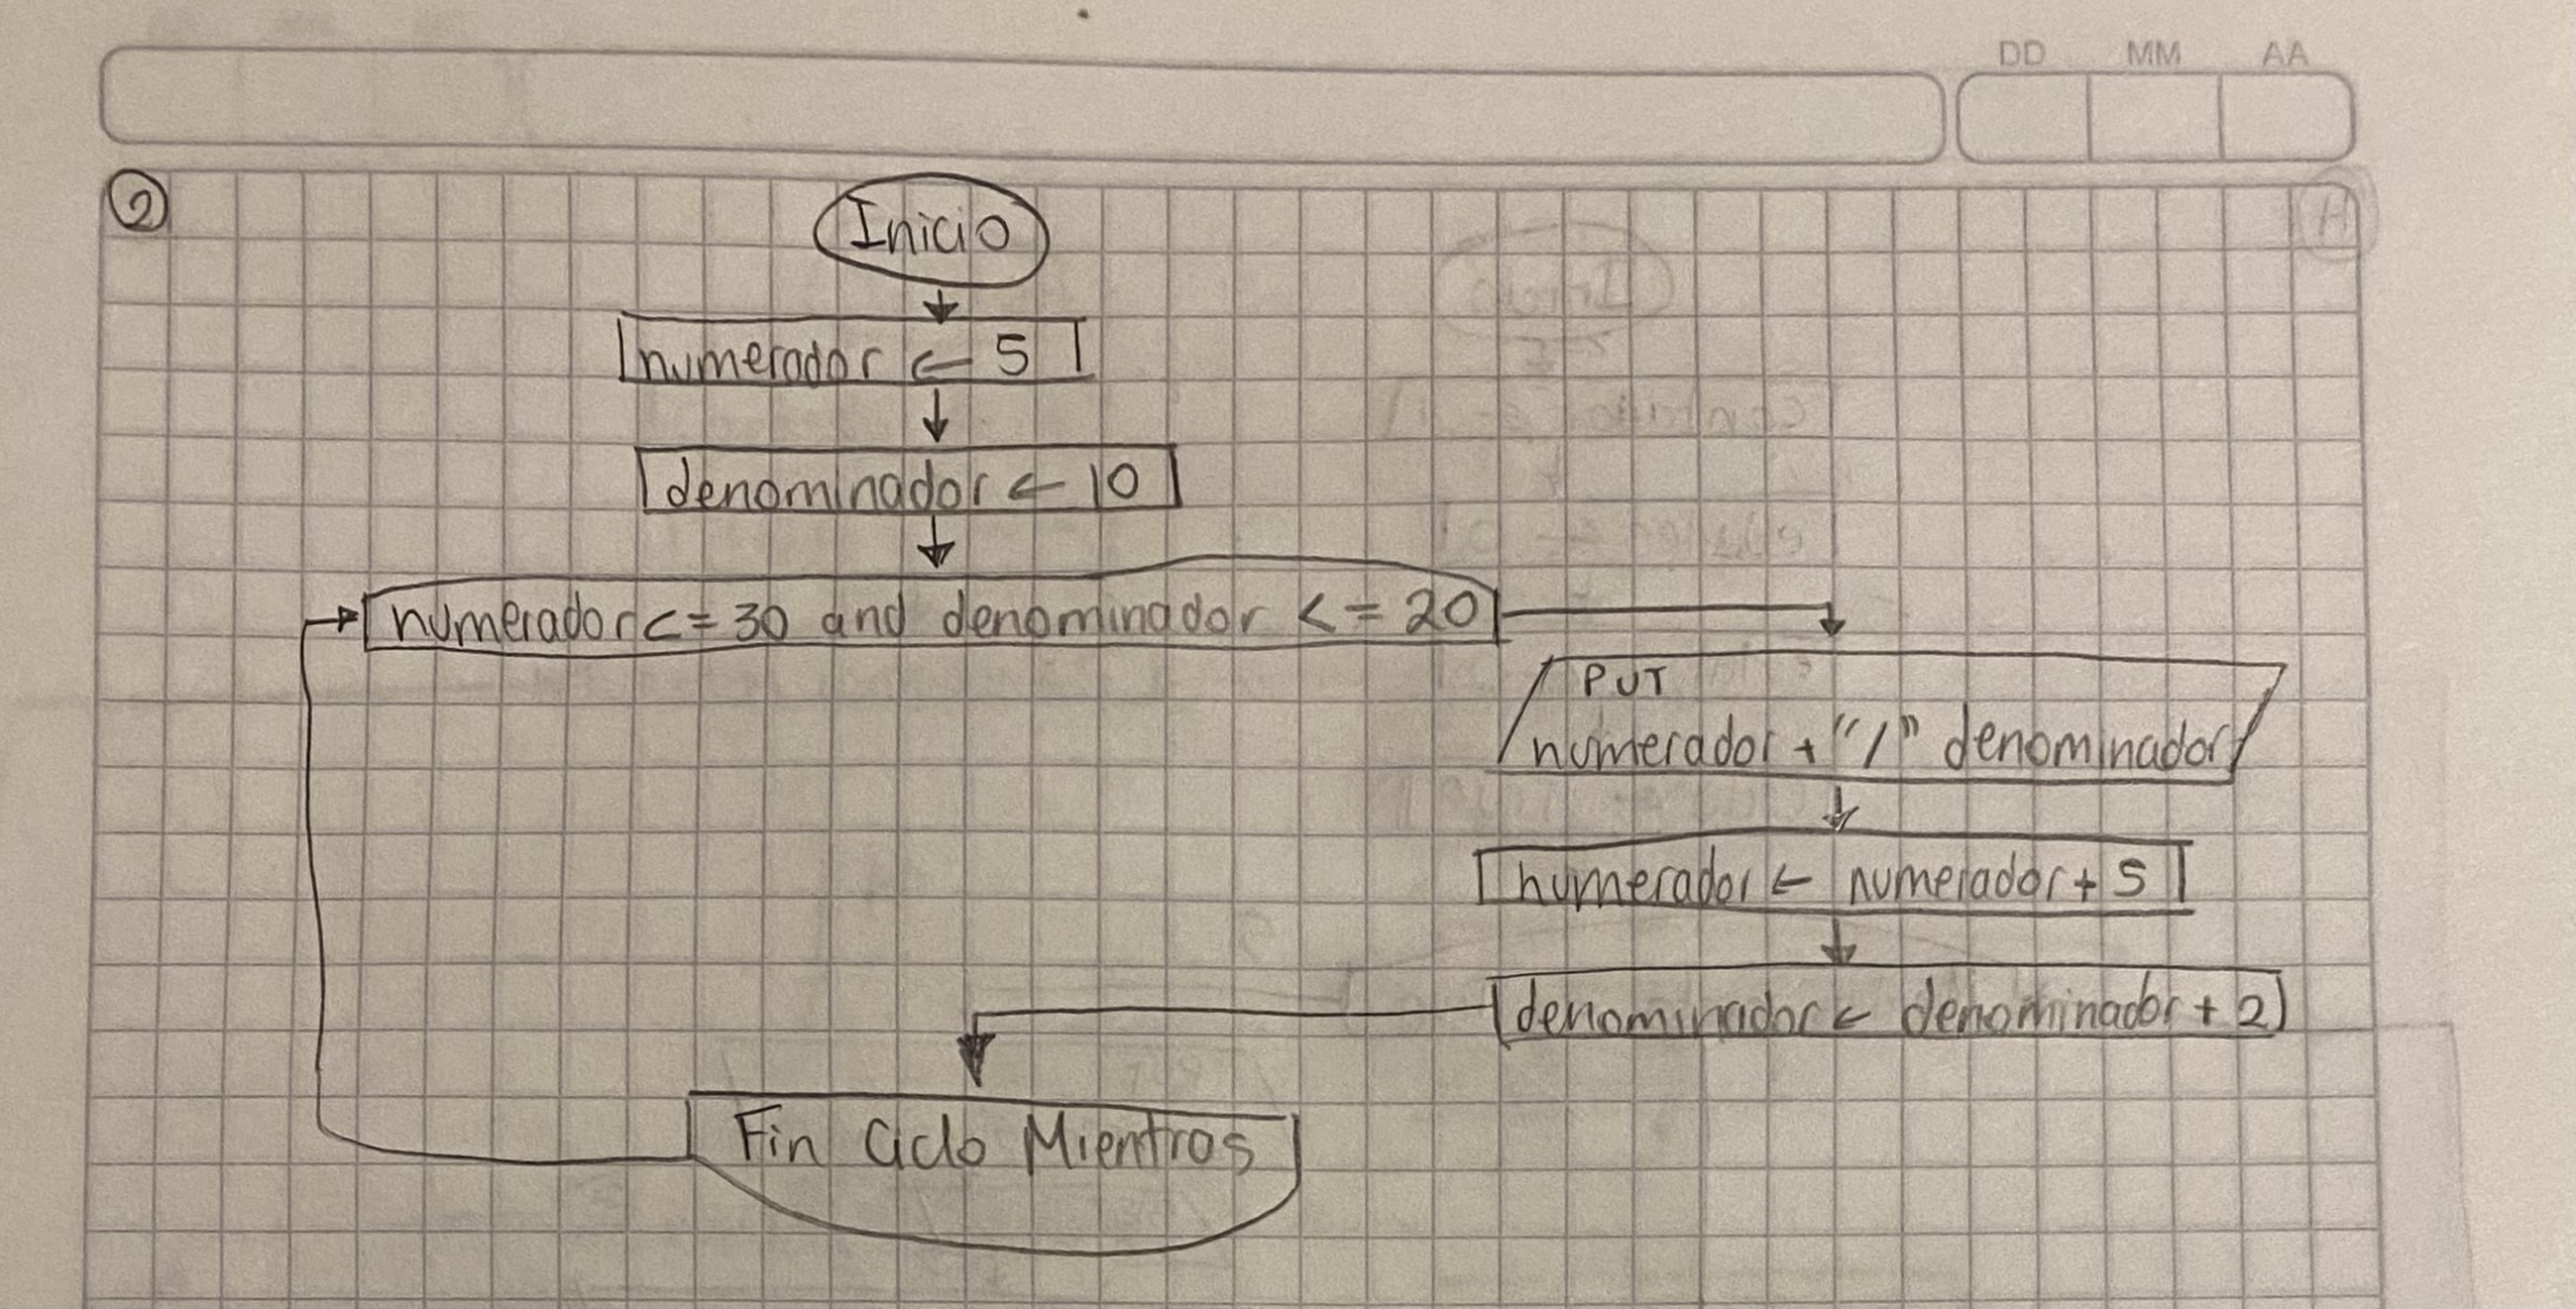 DD MM AA
2
Inicio
numerador ← 5
denominador ← 10
numerador <= 30 and denominador <= 20
PUT
numerador + "/" denominador
numerador ← numerador + 5
denominador ← denominador + 2
Fin Ciclo Mientras